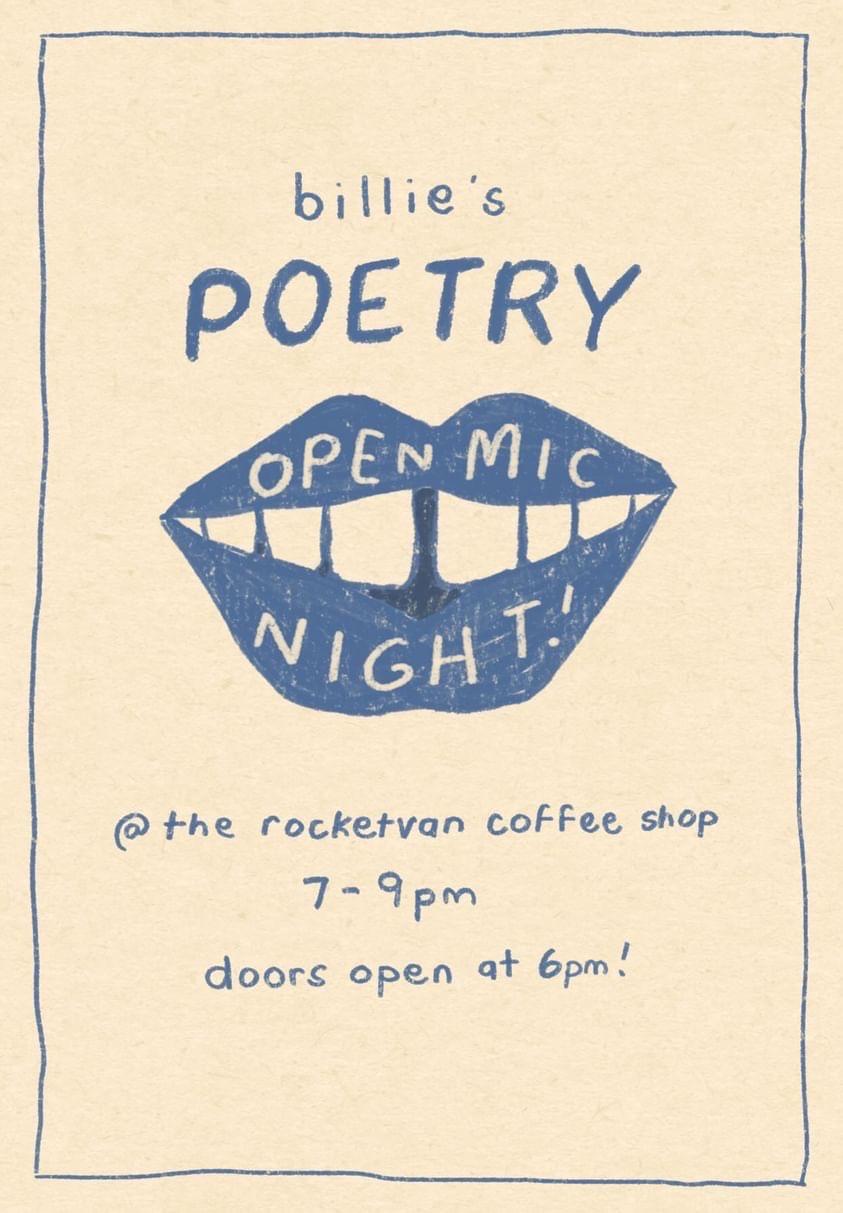 billie's
POETRY
OPEN MIC
NIGHT!
@ the rocketvan coffee shop
7-9pm
doors open at 6pm!